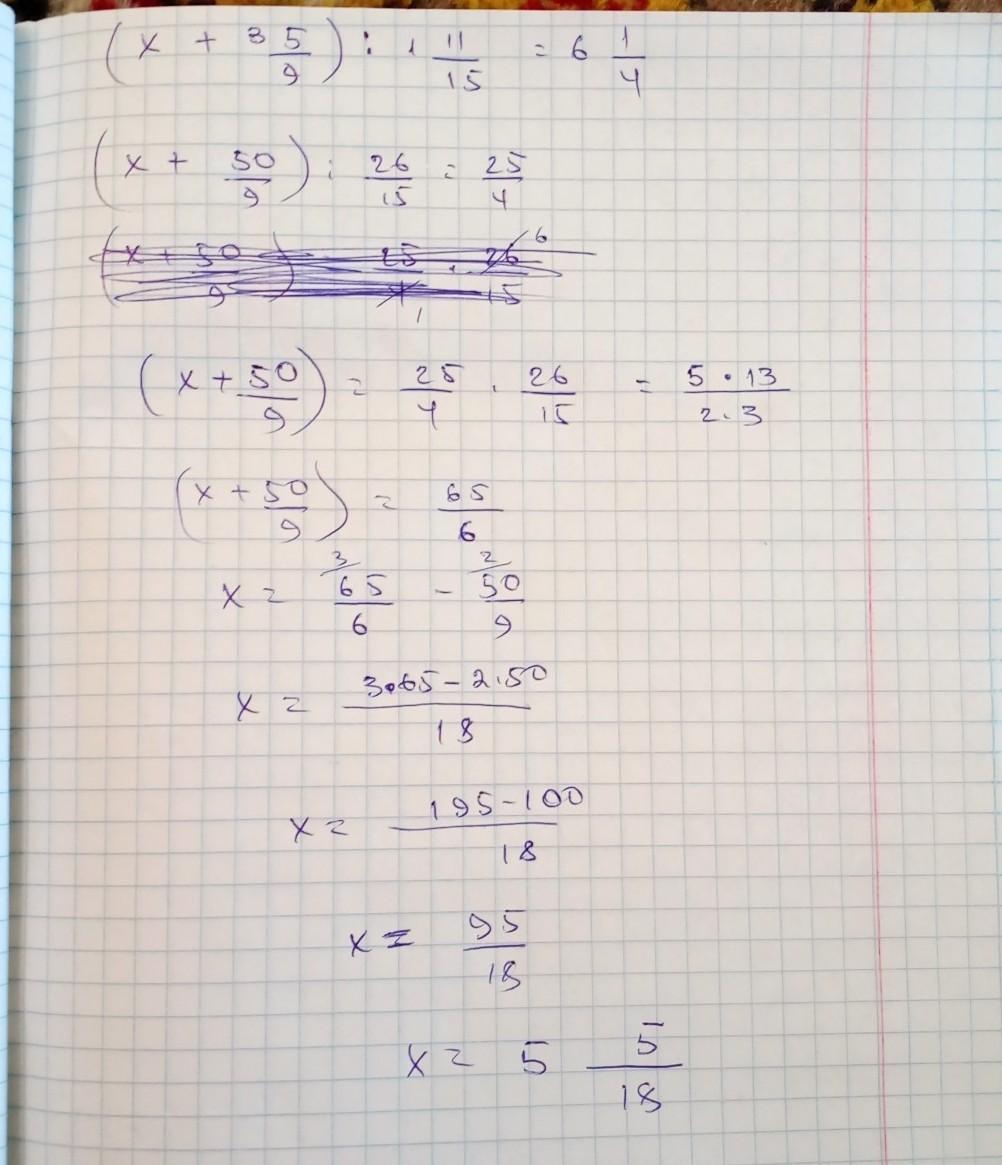 (x + 3 5/9) : 1 11/15 = 6 1/4
(x + 50/9) : 26/15 = 25/4
(x + 50/9) = 25/4 · 26/15 = 5 · 13/2 · 3
(x + 50/9) = 65/6
x = 3/ 65/6 - 2/ 50/9
x = 3·65 - 2·50/18
x = 195 - 100/18
x = 95/18
x = 5 5/18